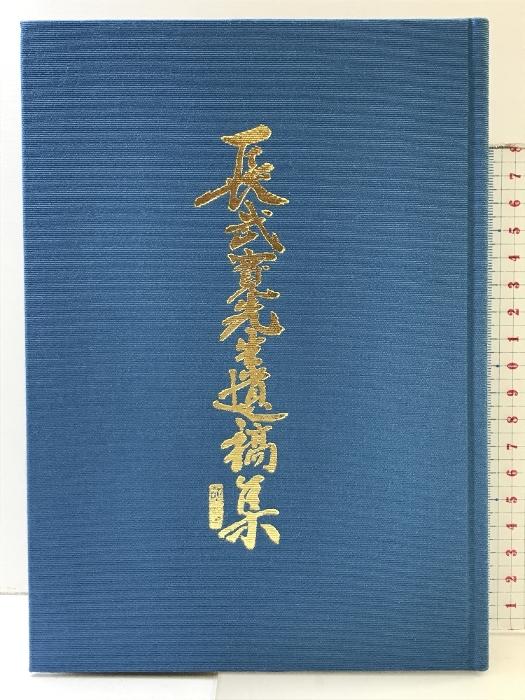 長武寛先生遺稿集
1 2 3 4 5 6 7 8 9 0 1 2 3 4 5 6 7 8